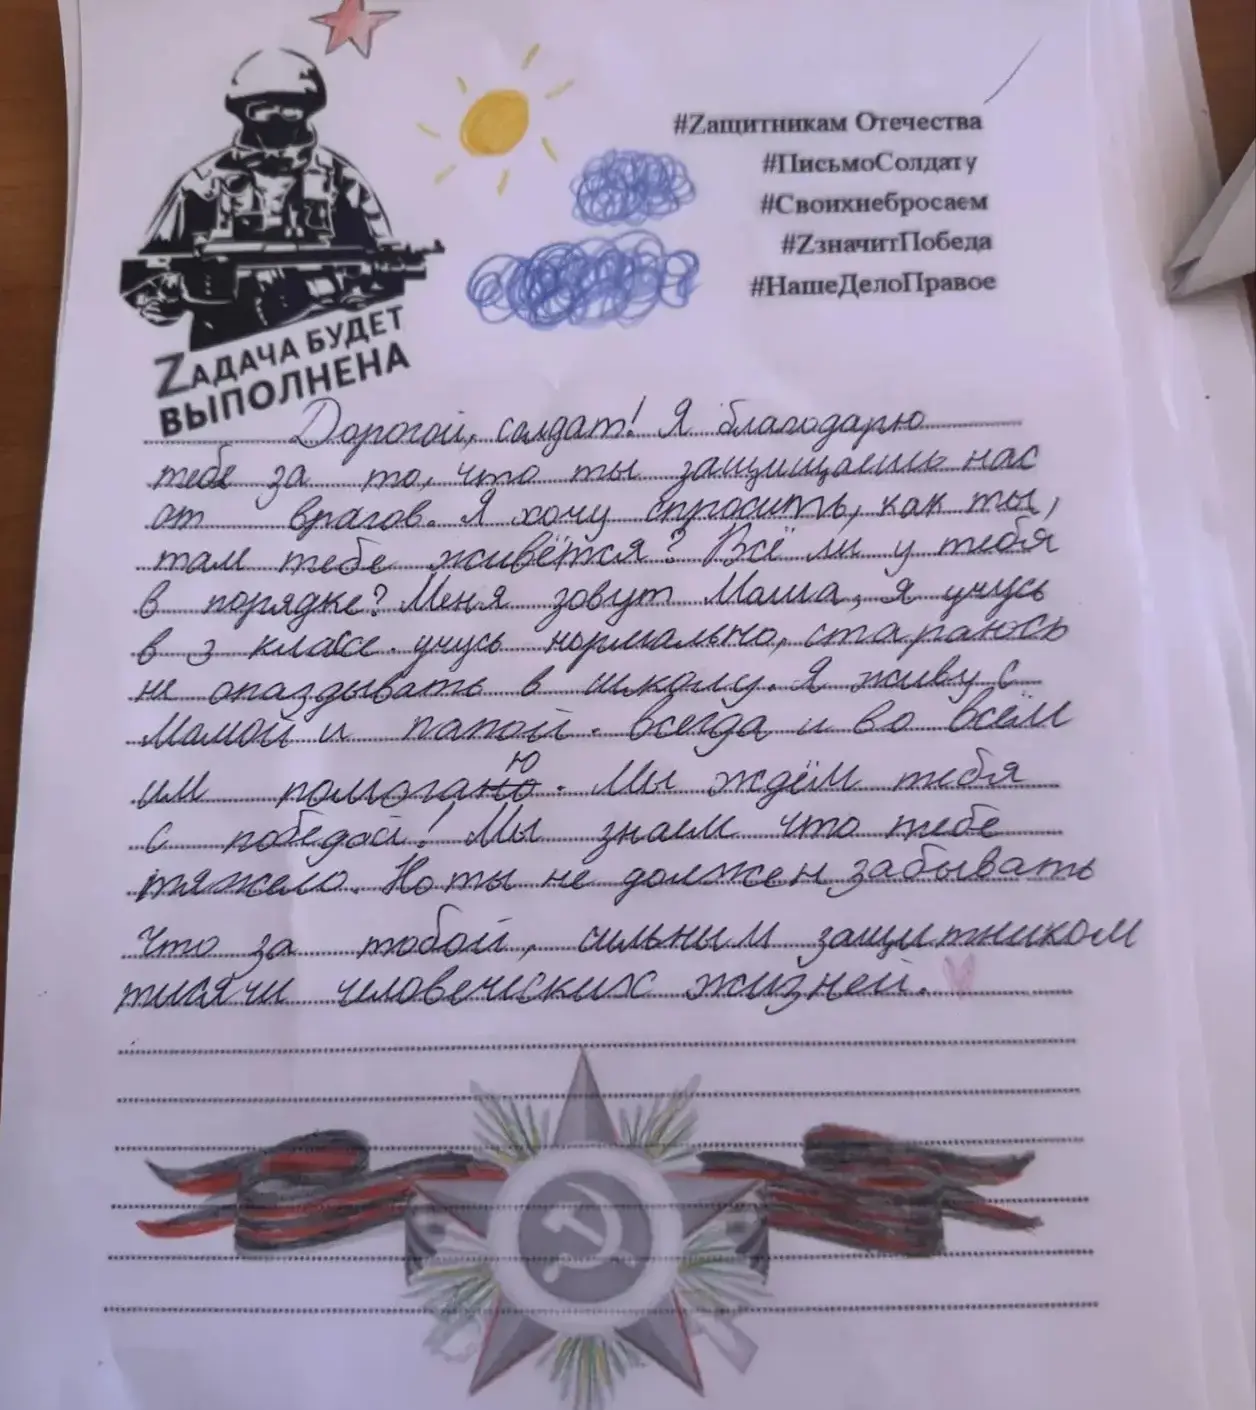 #Zащитникам Отечества
#ПисьмоСолдату
#Своихнебросаем
#ZзначитПобеда
#НашеДелоПравое
ZАДАЧА БУДЕТ
ВЫПОЛНЕНА
Дорогой, солдат! Я благодарю
тебе за то, что ты защищаешь нас
от врагов. Я хочу спросить, как ты,
там тебе живётся? Всё ли у тебя
в порядке? Меня зовут Маша, я учусь
в 3 классе. учусь нормально, стараюсь
не опаздывать в школу. Я живу с
Мамой и папой. всегда и во всём
им помогаю. Мы ждём тебя
с победой! Мы знаем что тебе
тяжело. Но ты не должен забывать
что за тобой, сильным защитником
тысячи человеческих жизней.